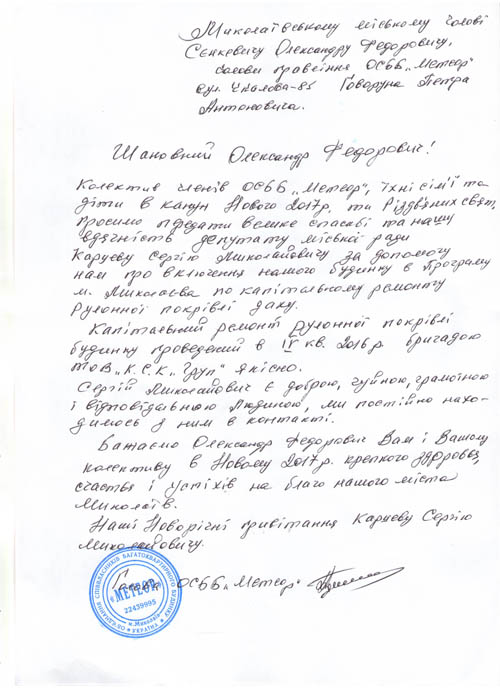 Миколаївському міському голові
Сєнкевичу Олександру Федоровичу,
голови правління ОСББ „Метеор"
вул. Чкалова-85 Говоруна Петра
Антоновича.
Шановний Олександр Федорович!
Колектив членів ОСББ „Метеор", їхні сім'ї та
діти в канун Нового 2017р. та Різдвяних свят,
просимо передати велике спасибі та нашу
вдячність депутату міської ради
Карцеву Сергію Миколайовичу за допомогу
нам про включення нашого будинку в Програму
м. Миколаєва по капітальному ремонту
рулонної покрівлі даху.
Капітаєвий ремонт рулонної покрівлі
будинку проведений в IV кв. 2016р. бригадою
ТОВ „К.С.К. „Груп" якісно.
Сергій Миколайович є доброю, чуйною, грамотною
і відповідальною людиною, ми постійно нахо-
димось з ним в контакті.
Бажаємо Олександр Федорович Вам і Вашому
колективу в Новому 2017р. крепкого здоровья,
счастья і успіхів на благо нашого міста
Миколаїв.
Наші Новорічні привітання Карцеву Сергію
Миколайовичу.
Голова ОСББ „Метеор"
ОБ'ЄДНАННЯ СПІВВЛАСНИКІВ БАГАТОКВАРТИРНОГО БУДИНКУ
"МЕТЕОР"
22439995
м.Миколаїв
УКРАЇНА